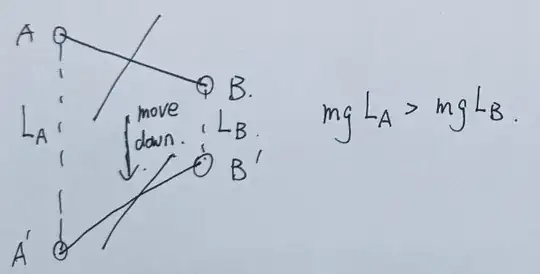 A
B.
L_A
move
down.
L_B.
mg L_A > mg L_B.
B'
A'